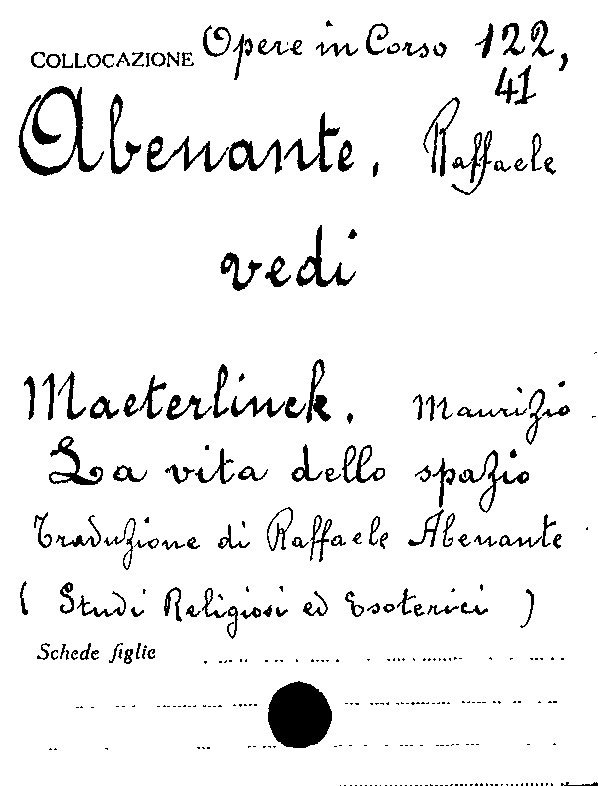 COLLOCAZIONE Opere in Corso 122,
41
Abenante, Raffaele
vedi
Maeterlinck, Maurizio
La vita dello spazio
Traduzione di Raffaele Abenante
( Studi Religiosi ed Esoterici )
Schede figlie